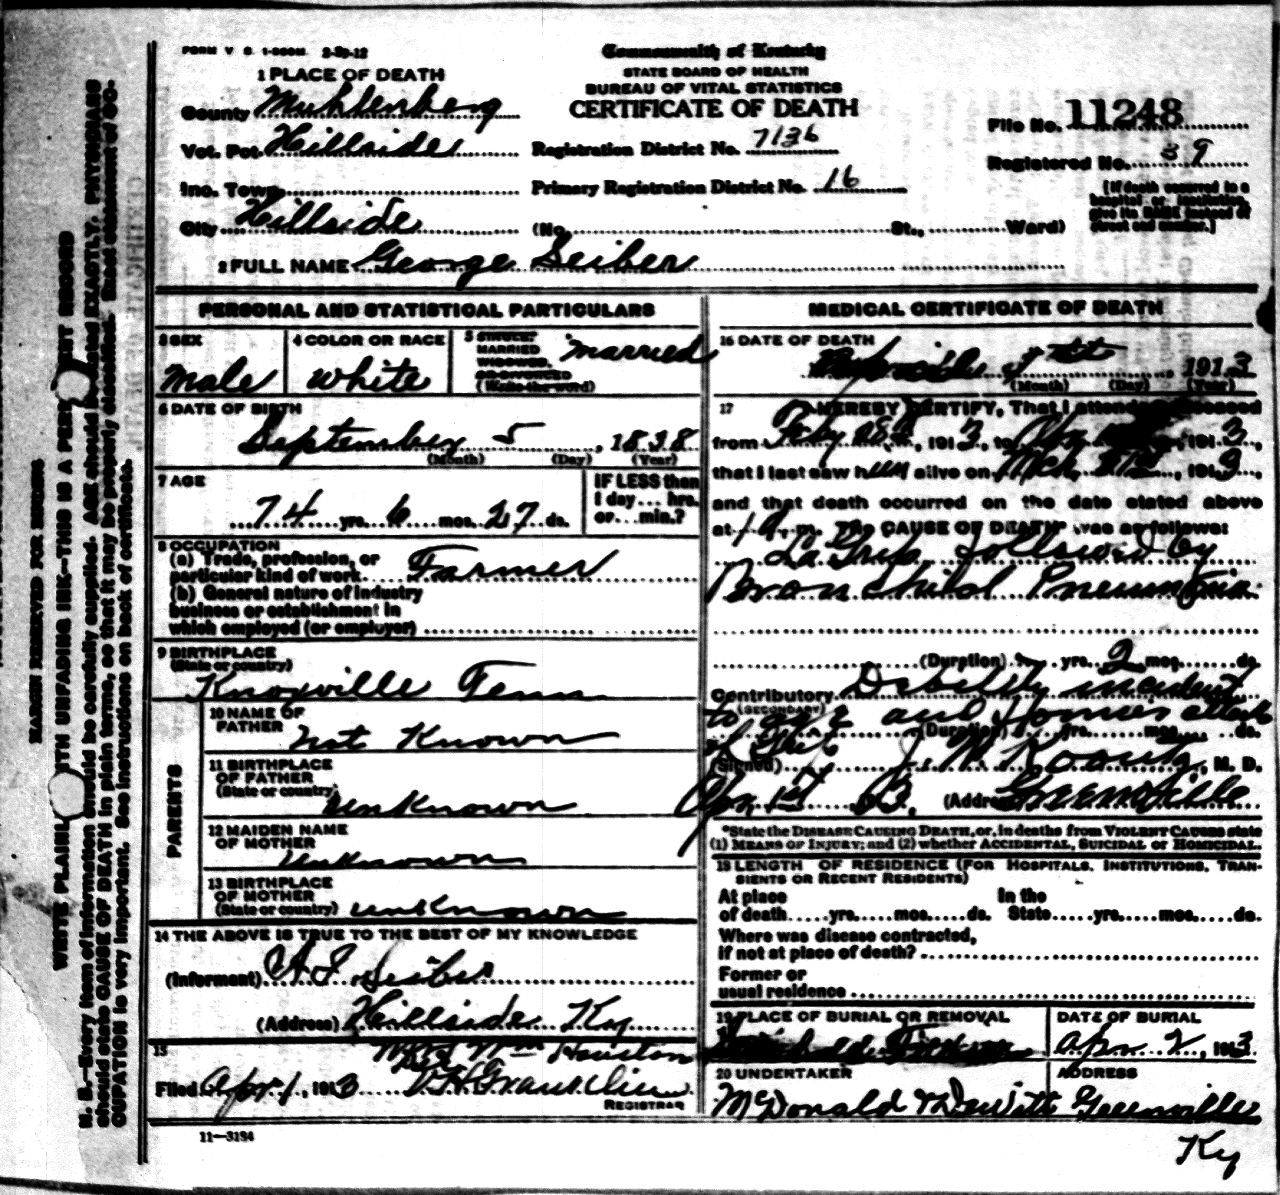 FORM V. S. 1-500M. 2-29-12
Commonwealth of Kentucky
STATE BOARD OF HEALTH
BUREAU OF VITAL STATISTICS
CERTIFICATE OF DEATH
1 PLACE OF DEATH
County Muhlenberg
Vot. Pct. Hillside
Inc. Town
City Hillside
Registration District No. 7136
Primary Registration District No. 16
(No. St., Ward)
File No. 11248
Registered No. 39
[If death occurred in a
hospital or institution,
give its NAME instead of
street and number.]
2 FULL NAME George Seiber
PERSONAL AND STATISTICAL PARTICULARS
3 SEX
Male
4 COLOR OR RACE
White
5 SINGLE,
MARRIED
WIDOWED,
OR DIVORCED
(Write the word)
Married
6 DATE OF BIRTH
September 5, 1838
(Month) (Day) (Year)
7 AGE
74 yrs. 6 mos. 27 ds.
IF LESS than
1 day... hrs.
or... min.?
8 OCCUPATION
(a) Trade, profession, or
particular kind of work Farmer
(b) General nature of industry
business or establishment in
which employed (or employer)
9 BIRTHPLACE
(State or country)
Knoxville Tenn
PARENTS
10 NAME OF
FATHER
not Known
11 BIRTHPLACE
OF FATHER
(State or country)
unKnown
12 MAIDEN NAME
OF MOTHER
unknown
13 BIRTHPLACE
OF MOTHER
(State or country) unKnown
14 THE ABOVE IS TRUE TO THE BEST OF MY KNOWLEDGE
(Informant) Seiber
(Address) Hillside Ky
15
Wm Houston
Filed Apr 1, 1913
REGISTRAR
MEDICAL CERTIFICATE OF DEATH
16 DATE OF DEATH
1st, 1913
(Month) (Day) (Year)
17 I HEREBY CERTIFY, That I attended deceased
from Feby 28th, 1913, to Apr, 1913,
that I last saw him alive on Mch, 1913,
and that death occurred on the date stated above
at 1 a.m. The CAUSE OF DEATH* was as follows:
La Grip followed by
Bronchial Pneumonia
(Duration) yrs. 2 mos. ds.
Contributory Debility incident
(SECONDARY)
to age and attack
(Duration) yrs. mos. ds.
(Signed) J. W. Koontz, M. D.
Apr 1st 13. (Address) Greenville
*State the DISEASE CAUSING DEATH, or, in deaths from VIOLENT CAUSES state
(1) MEANS OF INJURY; and (2) whether ACCIDENTAL, SUICIDAL or HOMICIDAL.
18 LENGTH OF RESIDENCE (FOR HOSPITALS, INSTITUTIONS, TRAN-
SIENTS OR RECENT RESIDENTS)
At place In the
of death yrs. mos. ds. State yrs. mos. ds.
Where was disease contracted,
if not at place of death?
Former or
usual residence
19 PLACE OF BURIAL OR REMOVAL
DATE OF BURIAL
Apr 2, 1913
20 UNDERTAKER
McDonald & Dewitt
ADDRESS
Greenville
Ky
11—3184
MARGIN RESERVED FOR BINDING
WRITE PLAINLY WITH UNFADING INK—THIS IS A PERMANENT RECORD
N. B.—Every item of information should be carefully supplied. AGE should be stated EXACTLY. PHYSICIANS
should state CAUSE OF DEATH in plain terms, so that it may be properly classified. Exact statement of OC-
CUPATION is very important. See instructions on back of certificate.